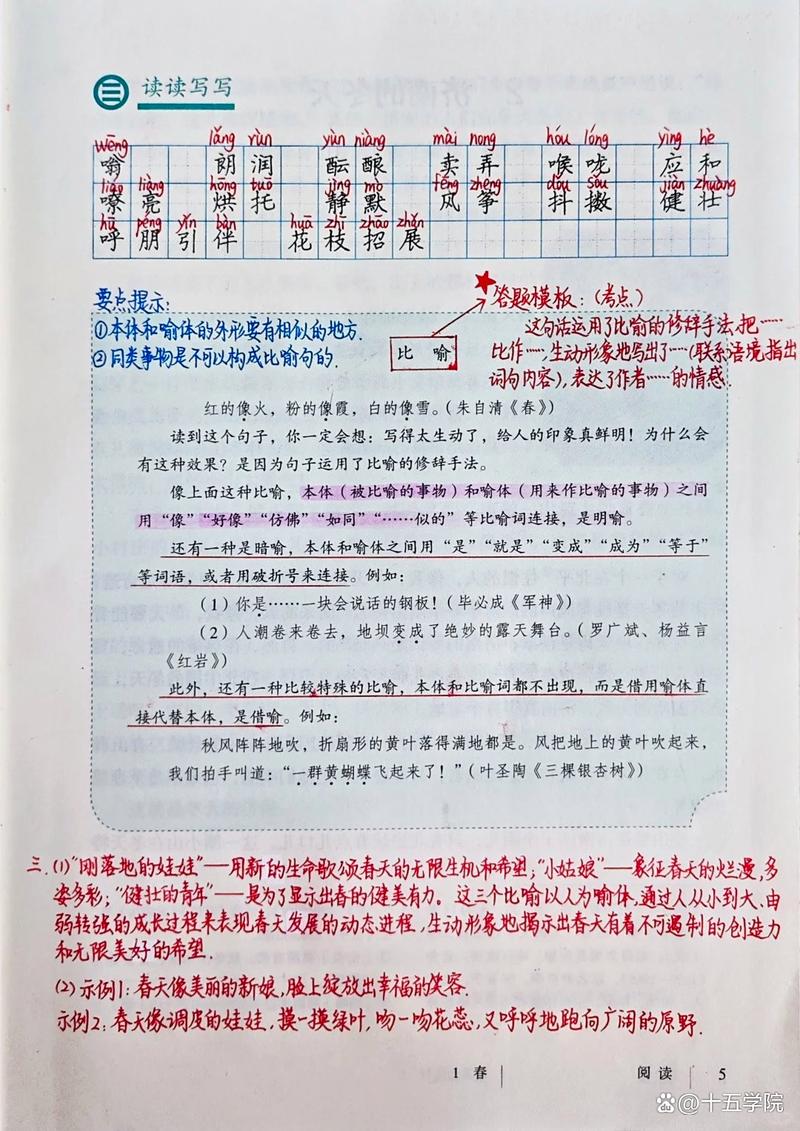 三 读读写写
wēng lǎng rùn yùn niàng mài nong hóu lóng yìng hè
嗡 朗润 酝酿 卖弄 喉咙 应和
liáo liàng hōng tuō jìng mò fēng zheng dǒu sǒu jiàn zhuàng
嘹亮 烘托 静默 风筝 抖擞 健壮
hū péng yǐn bàn huā zhī zhāo zhǎn
呼朋引伴 花枝招展
要点提示:
①本体和喻体的外形要有相似的地方.
②同类事物是不可以构成比喻句的.
答题模板:(考点)
这句话运用了比喻的修辞手法,把……
比作……,生动形象地写出了……(联系语境,指出
词句内容),表达了作者……的情感.
比 喻
红的像火,粉的像霞,白的像雪。(朱自清《春》)
读到这个句子,你一定会想:写得太生动了,给人的印象真鲜明!为什么会
有这种效果?是因为句子运用了比喻的修辞手法。
像上面这种比喻,本体(被比喻的事物)和喻体(用来作比喻的事物)之间
用“像”“好像”“仿佛”“如同”“……似的”等比喻词连接,是明喻。
还有一种是暗喻,本体和喻体之间用“是”“就是”“变成”“成为”“等于”
等词语,或者用破折号来连接。例如:
(1)你是……一块会说话的钢板!(毕必成《军神》)
(2)人潮卷来卷去,地坝变成了绝妙的露天舞台。(罗广斌、杨益言
《红岩》)
此外,还有一种比较特殊的比喻,本体和比喻词都不出现,而是借用喻体直
接代替本体,是借喻。例如:
秋风阵阵地吹,折扇形的黄叶落得满地都是。风把地上的黄叶吹起来,
我们拍手叫道:“一群黄蝴蝶飞起来了!”(叶圣陶《三棵银杏树》)
三.(1)“刚落地的娃娃”——用新的生命歌颂春天的无限生机和希望;“小姑娘”——象征春天的烂漫,多
姿多彩;“健壮的青年”——是为了显示出春的健美有力。这三个比喻以人为喻体,通过人从小到大、由
弱转强的成长过程来表现春天发展的动态进程,生动形象地揭示出春天有着不可遏制的创造力
和无限美好的希望.
(2)示例1:春天像美丽的新娘,脸上绽放出幸福的笑容.
示例2:春天像调皮的娃娃,摸一摸绿叶,吻一吻花蕊,又呼呼地跑向广阔的原野.
1 春 阅读 5
@十五学院